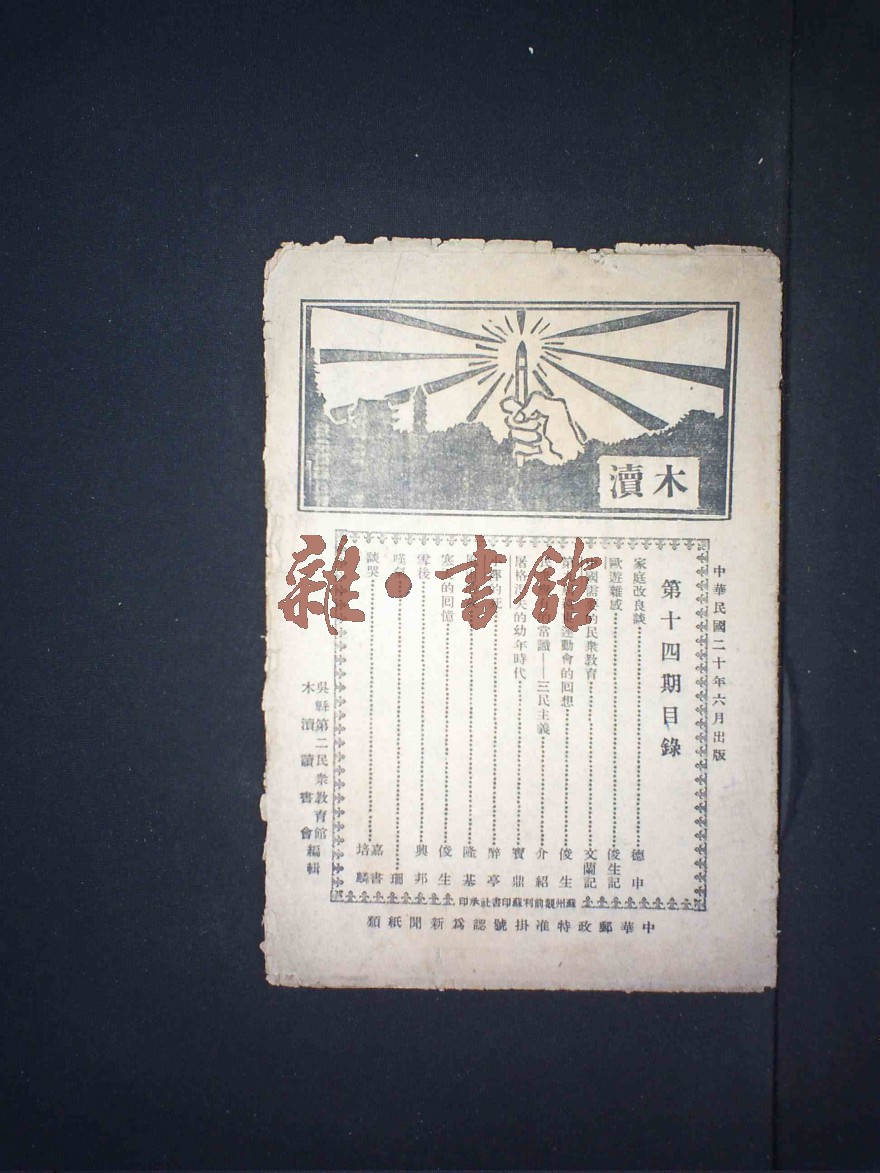 木瀆
中華民國二十年六月出版
第十四期目錄
家庭改良談 德中
歐遊雜感 俊生記
國需要的民衆教育 文蘭記
運動會的回想 俊生
常識——三民主義 介紹
屠格涅夫的幼年時代 寶鼎
的死 醉亭
隆基
寒的回憶 俊生
雪後 興邦
嘆 珊
談哭 嘉書 培麟
吳縣第二民衆教育館
木瀆讀書會
編輯
蘇州觀前利蘇印書社承印
中華郵政特准掛號認爲新聞紙類
雜·書館